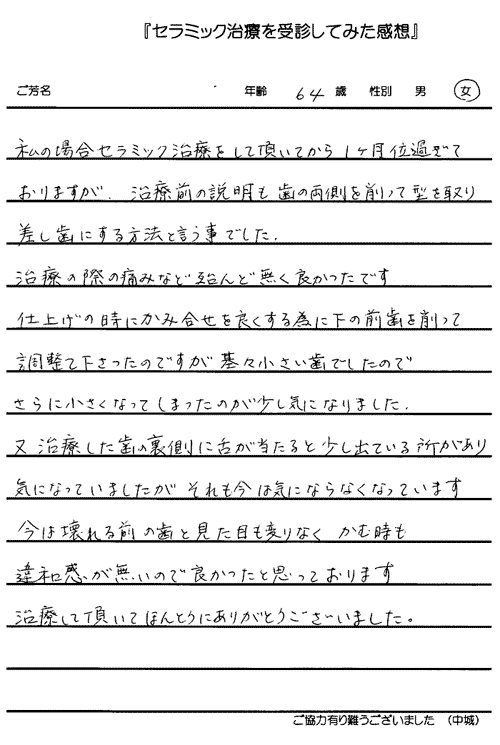 『セラミック治療を受診してみた感想』
ご芳名 年齢 64 歳 性別 男 女
私の場合セラミック治療をして頂いてから1ヶ月位過ぎて
おりますが、治療前の説明も歯の両側を削って型を取り
差し歯にする方法と言う事でした.
治療の際の痛みなど殆んど無く良かったです
仕上げの時にかみ合せを良くする為に下の前歯を削って
調整て下さったのですが基々小さい歯でしたので
さらに小さくなってしまったのが少し気になりました.
又治療した歯の裏側に舌が当たると少し出ている所があり
気になっていましたが それも今は気にならなくなっています
今は壊れる前の歯と見た目も変りなく かむ時も
違和感が無いので良かったと思っております
治療して頂いてほんとうにありがとうございました。
ご協力有り難うございました (中城)